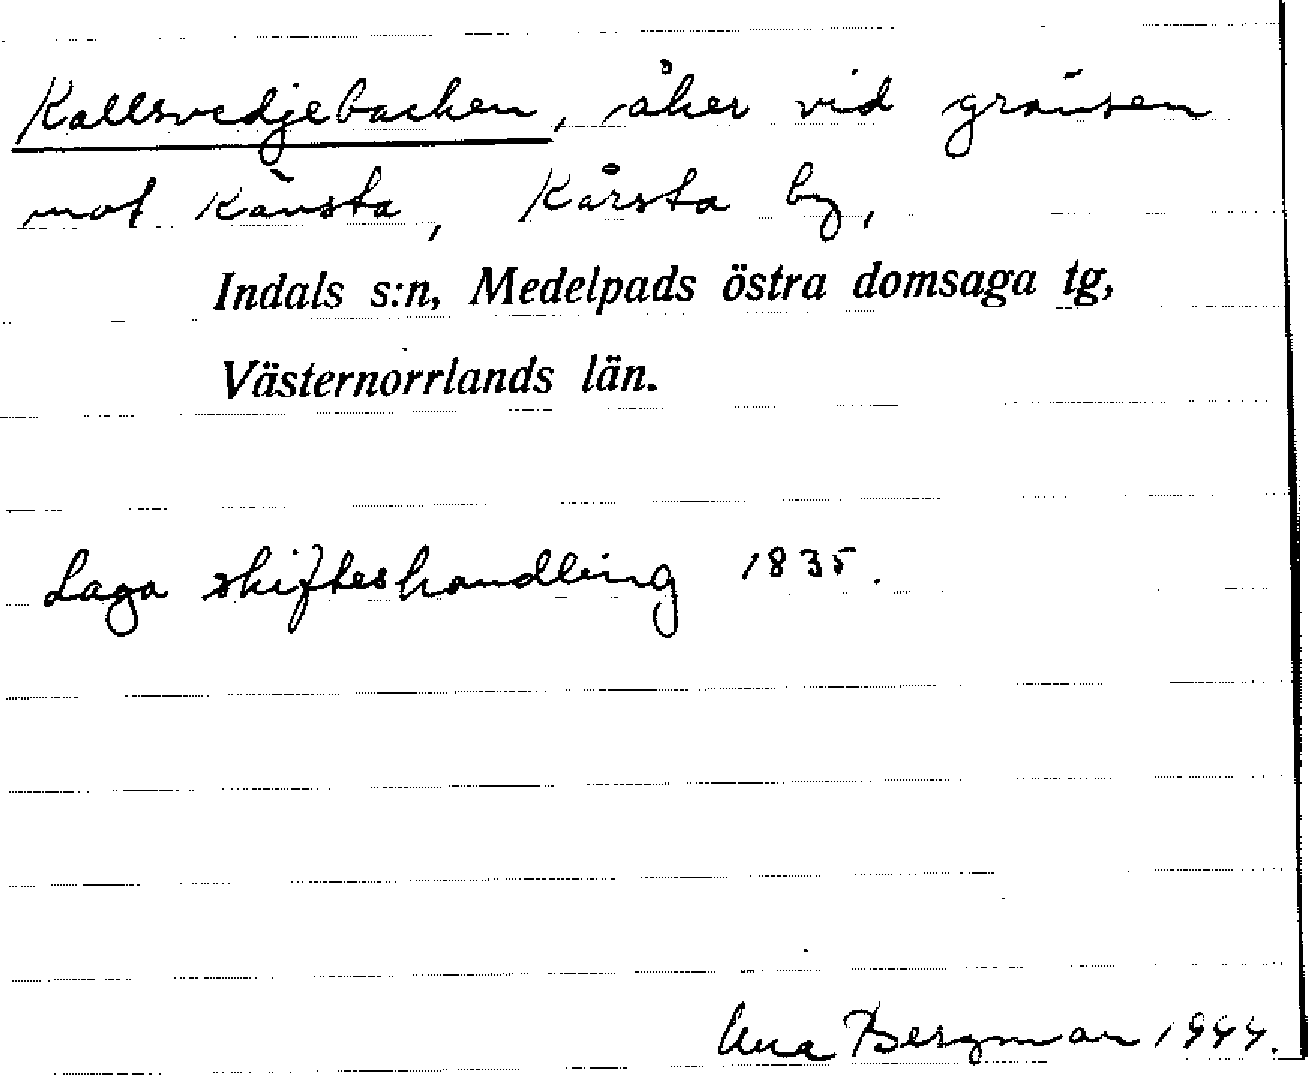 Kallsvedjebacken, åker vid gränsen
mot Känsta, Kårsta by,
Indals s:n, Medelpads östra domsaga tg,
Västernorrlands län.
Laga skifteshandling 1835.
Bergman 1944.